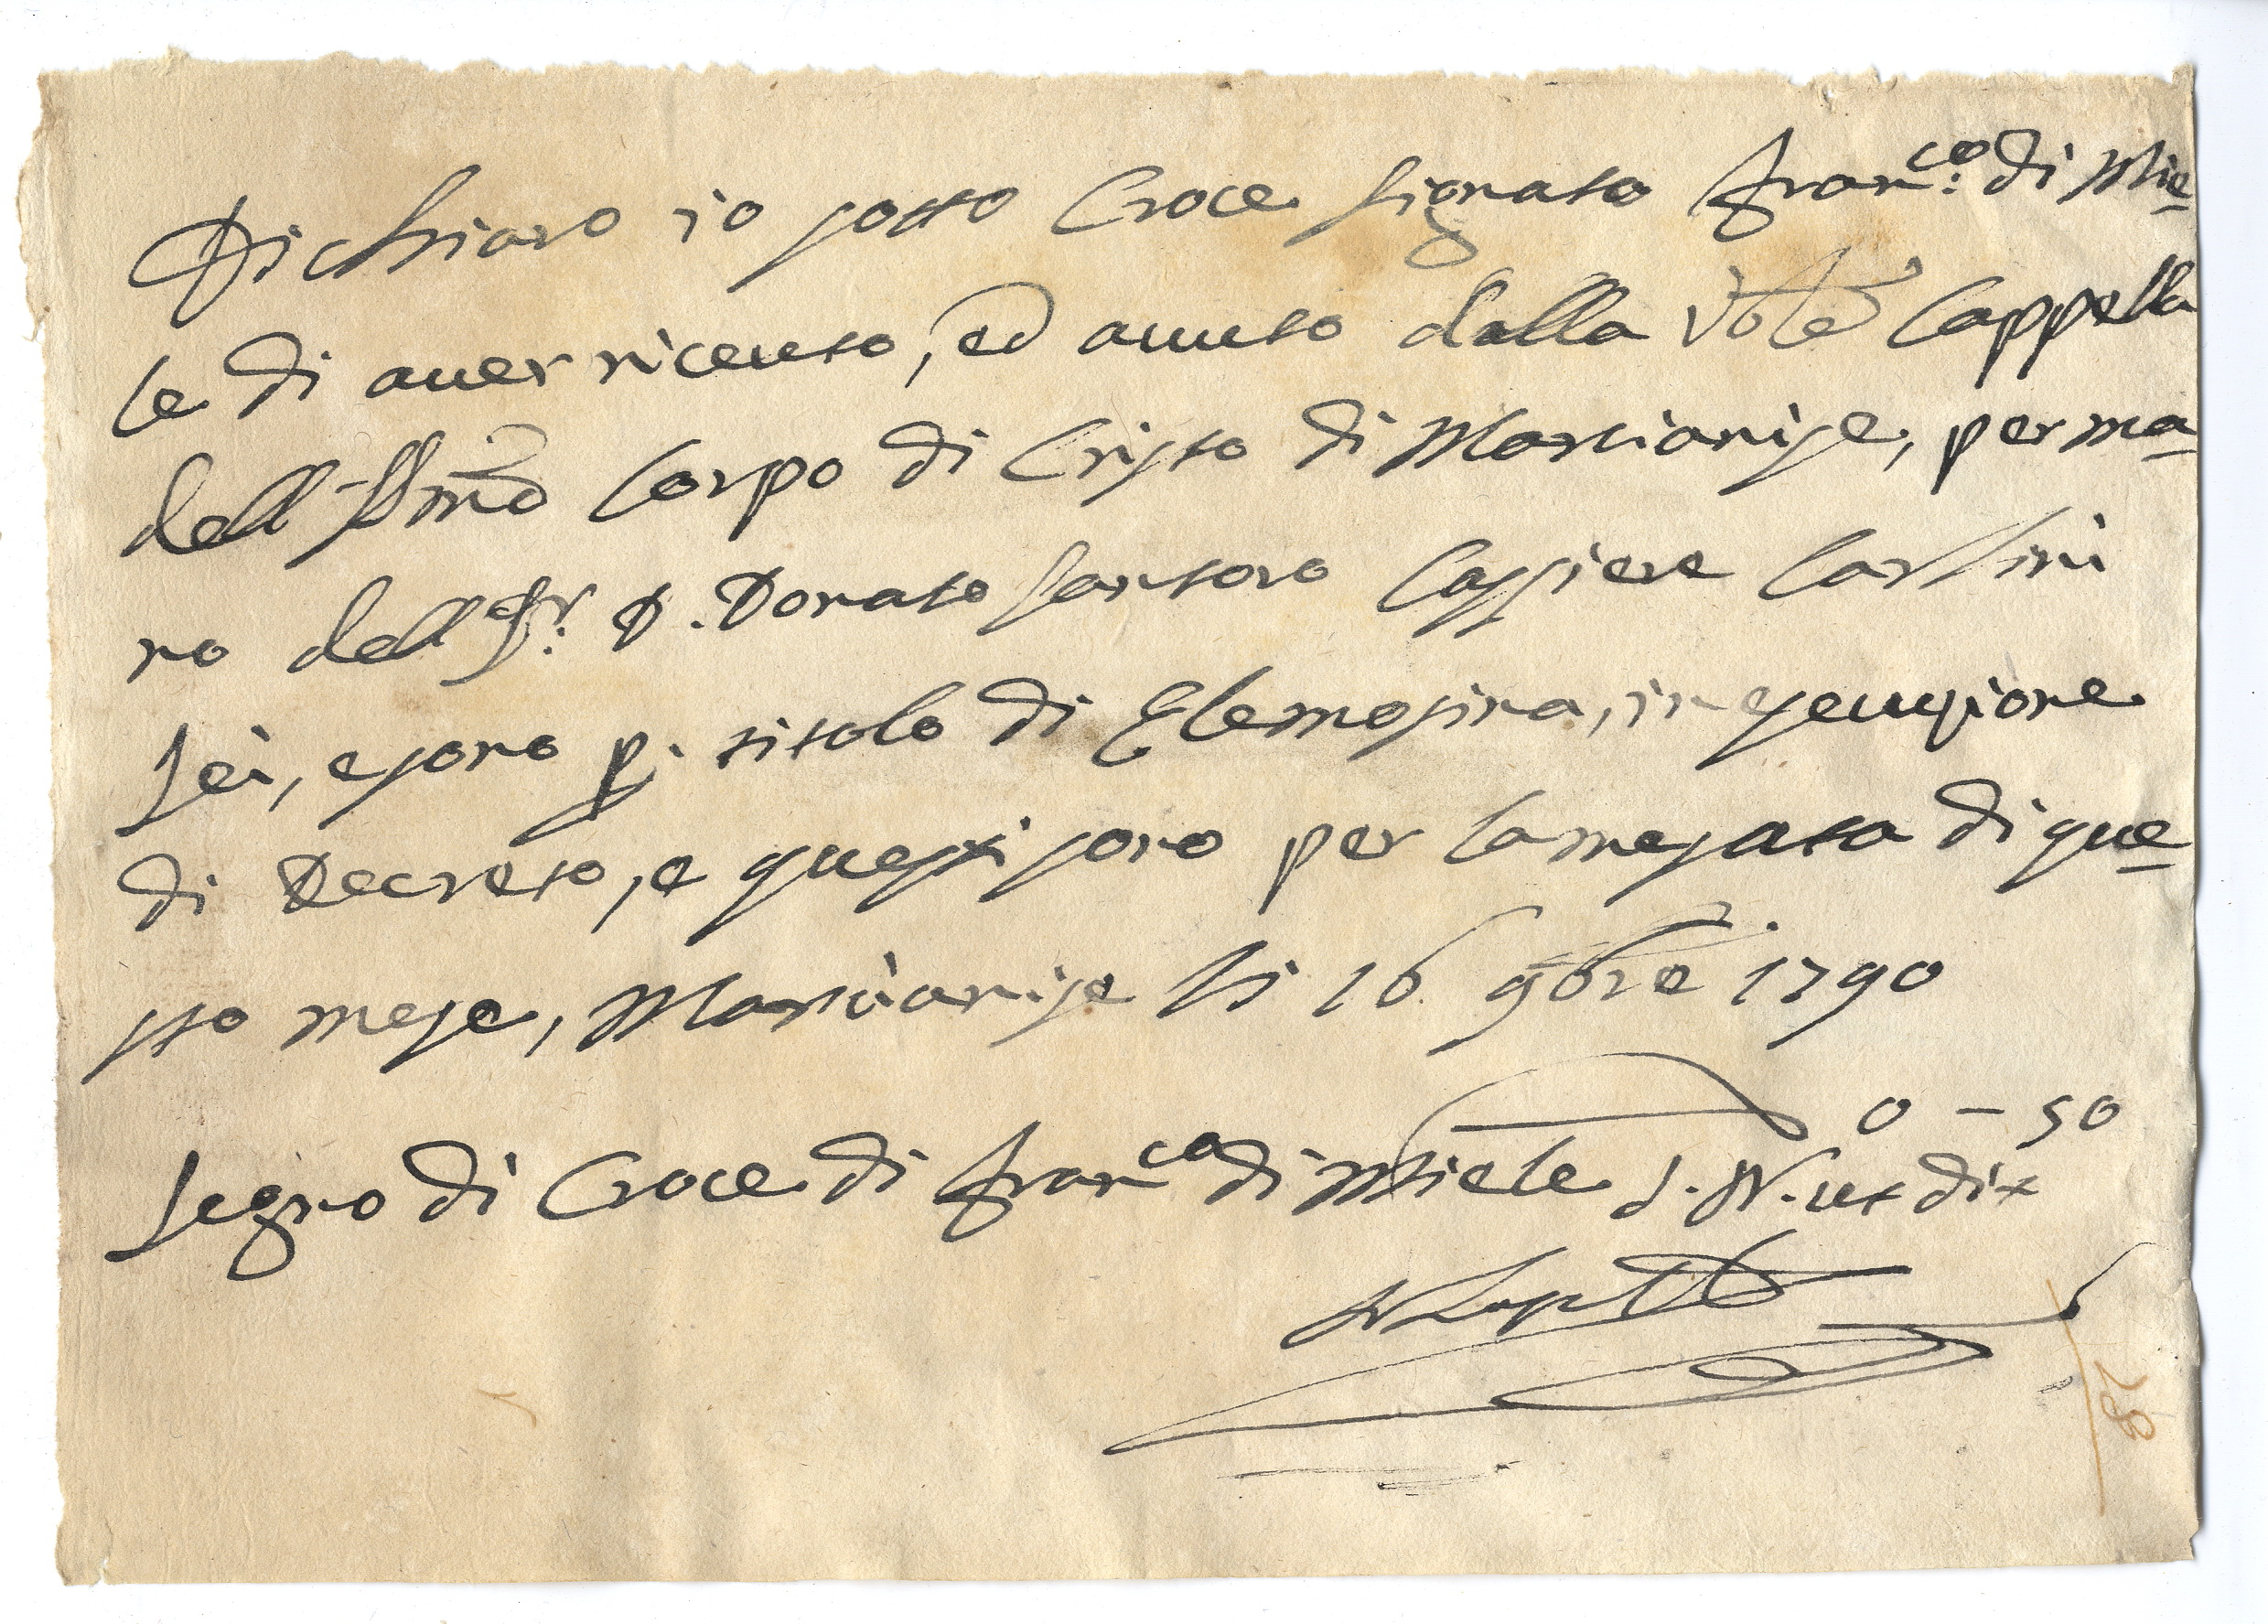 Dichiaro io sotto Croce signato Fran.co di Mie-
le di auer riceuto, ed auuto dalla Vole Cappella
dell SSmo Corpo di Cristo di Marcianise, per ma-
no dell Sr. D. Donato Santoro Cassiere Carlini
sei, e sono p. titolo di Elemosina, in esecuzione
di Decreto, e questi sono per la mesata di que-
sto mese, Marcianise li 16 9bre 1790
0 - 50
Segno di Croce di Fran.co di Miele S. N. ut dix
28